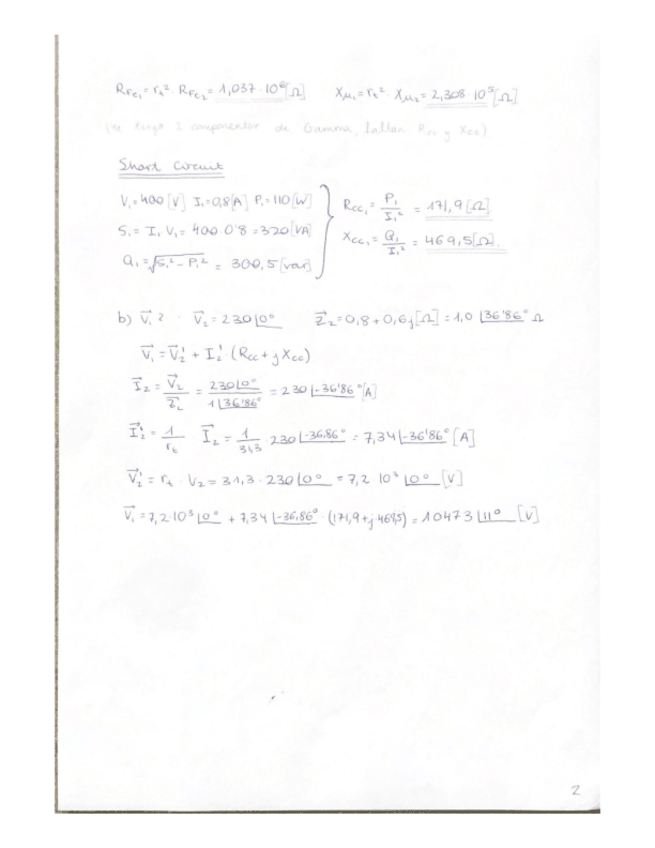 R_Fe1 = r_t² · R_Fe2 = 1,037 · 10⁶ [Ω]   X_μ1 = r_t² · X_μ2 = 2,308 · 10⁵ [Ω]
2 componentes de Gamma, faltan Rcc y Xcc)
Short Circuit
V₁ = 400 [V]  I₁ = 0,8 [A]  P₁ = 110 [W]
S₁ = I₁ V₁ = 400 · 0'8 = 320 [VA]
Q₁ = √(S₁² − P₁²) = 300,5 [var]
R_cc1 = P₁ / I₁² = 171,9 [Ω]
X_cc1 = Q₁ / I₁² = 469,5 [Ω].
b) V⃗₁?   V⃗₂ = 230 |0°   Z⃗₂ = 0,8 + 0,6j [Ω] = 1,0 |36'86° Ω
V⃗₁ = V⃗₂' + I₂' · (Rcc + j Xcc)
I⃗₂ = V⃗₂ / Z⃗₂ = 230|0° / 1|36'86° = 230 |-36'86° [A]
I⃗₂' = 1/r_t I⃗₂ = 1/31,3 · 230 |-36,86° = 7,34 |-36'86° [A]
V⃗₂' = r_t · V₂ = 31,3 · 230 |0° = 7,2 · 10³ |0° [V]
V⃗₁ = 7,2 · 10³ |0° + 7,34 |-36,86° · (171,9 + j 469,5) = 10473 |11° [V]
2